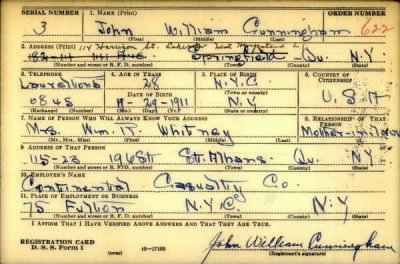 SERIAL NUMBER 1. NAME (Print) ORDER NUMBER
3 John William Cunningham 622
(First) (Middle) (Last)
2. ADDRESS (Print)
Springfield Qu. N.Y.
(Number and street or R. F. D. number) (Town) (County) (State)
3. TELEPHONE 4. AGE IN YEARS 5. PLACE OF BIRTH 6. COUNTRY OF CITIZENSHIP
Laurelton 28 N.Y.C.
DATE OF BIRTH (Town or county)
0845 1911 N.Y. U.S.A
(Exchange) (Number) (Mo.) (Day) (Yr.) (State or country)
7. NAME OF PERSON WHO WILL ALWAYS KNOW YOUR ADDRESS 8. RELATIONSHIP OF THAT PERSON
Mrs. Wm. R. Whitney Mother-in-law
(Mr., Mrs., Miss) (First) (Middle) (Last)
9. ADDRESS OF THAT PERSON
115-23 196 St St. Albans Qu. N.Y.
(Number and street or R. F. D. number) (Town) (County) (State)
10. EMPLOYER'S NAME
Continental Casualty Co.
11. PLACE OF EMPLOYMENT OR BUSINESS
75 Fulton N.Y.C. N.Y.
(Number and street or R. F. D. number) (Town) (County) (State)
I AFFIRM THAT I HAVE VERIFIED ABOVE ANSWERS AND THAT THEY ARE TRUE.
REGISTRATION CARD
D. S. S. Form 1 16—17105 John William Cunningham
(Registrant's signature)